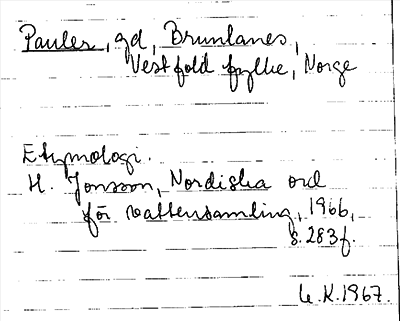 Pauler, gd, Brunlanes,
Vestfold fylke, Norge
Etymologi.
H. Jonsson, Nordiska ord
för vattensamling, 1966,
s. 283 f.
L.K. 1967.